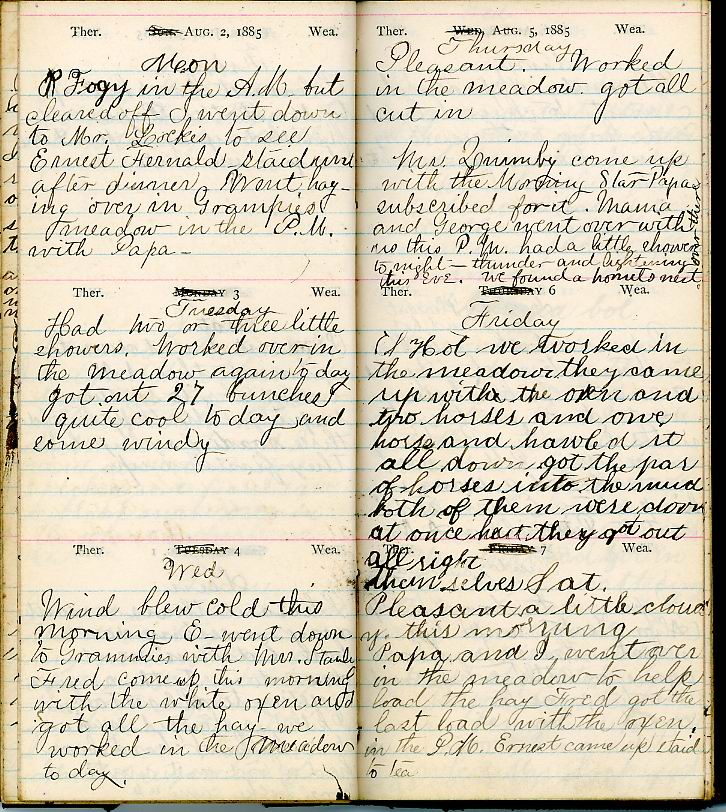 Ther. Sun. Aug. 2, 1885 Wea.
Mon
Fogy in the A.M. but
cleared off I went down
to Mr. Lockes to see
Ernest Fernald - staid until
after dinner. Went hay-
ing over in Grampies
meadow in the P.M.
with Papa -
Ther. Monday 3 Wea.
Tuesday
Had two or three little
showers. Worked over in
the meadow again to day
got out 27 bunches
quite cool to day and
some windy
Ther. Tuesday 4 Wea.
Wed
Wind blew cold this
morning E- went down
to Grammies with Mrs.
Fred come up this morning
with the white oxen and
got all the hay - we
worked in the meadow
to day.
Ther. Wed. Aug. 5, 1885 Wea.
Thursday
Pleasant. Worked
in the meadow. got all
cut in
Mrs. Quimby come up
with the Morning Star Papa
subscribed for it. Mama
and George went over with
us this P.M. had a little shower
to night - thunder and lightening
this eve. we found a hornets nest
over there
Ther. Thursday 6 Wea.
Friday
Hot we worked in
the meadow they came
up withe the oxen and
two horses and one
horse and hawled it
all down got the par
of horses into the mud
both of them were down
at once but they got out
all right
Ther. Friday 7 Wea.
themselves Sat.
Pleasant a little cloud
y. this morning
Papa and I went over
in the meadow to help
load the hay Fred got the
last load with the oxen.
in the P.M. Ernest came up staid
to tea